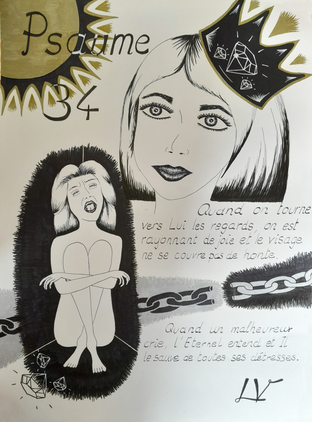 Psaume
34
Quand on tourne
vers Lui les regards, on est
rayonnant de joie et le visage
ne se couvre pas de honte.
Quand un malheureux
crie, l'Eternel entend et Il
le sauve de toutes ses détresses.
LV